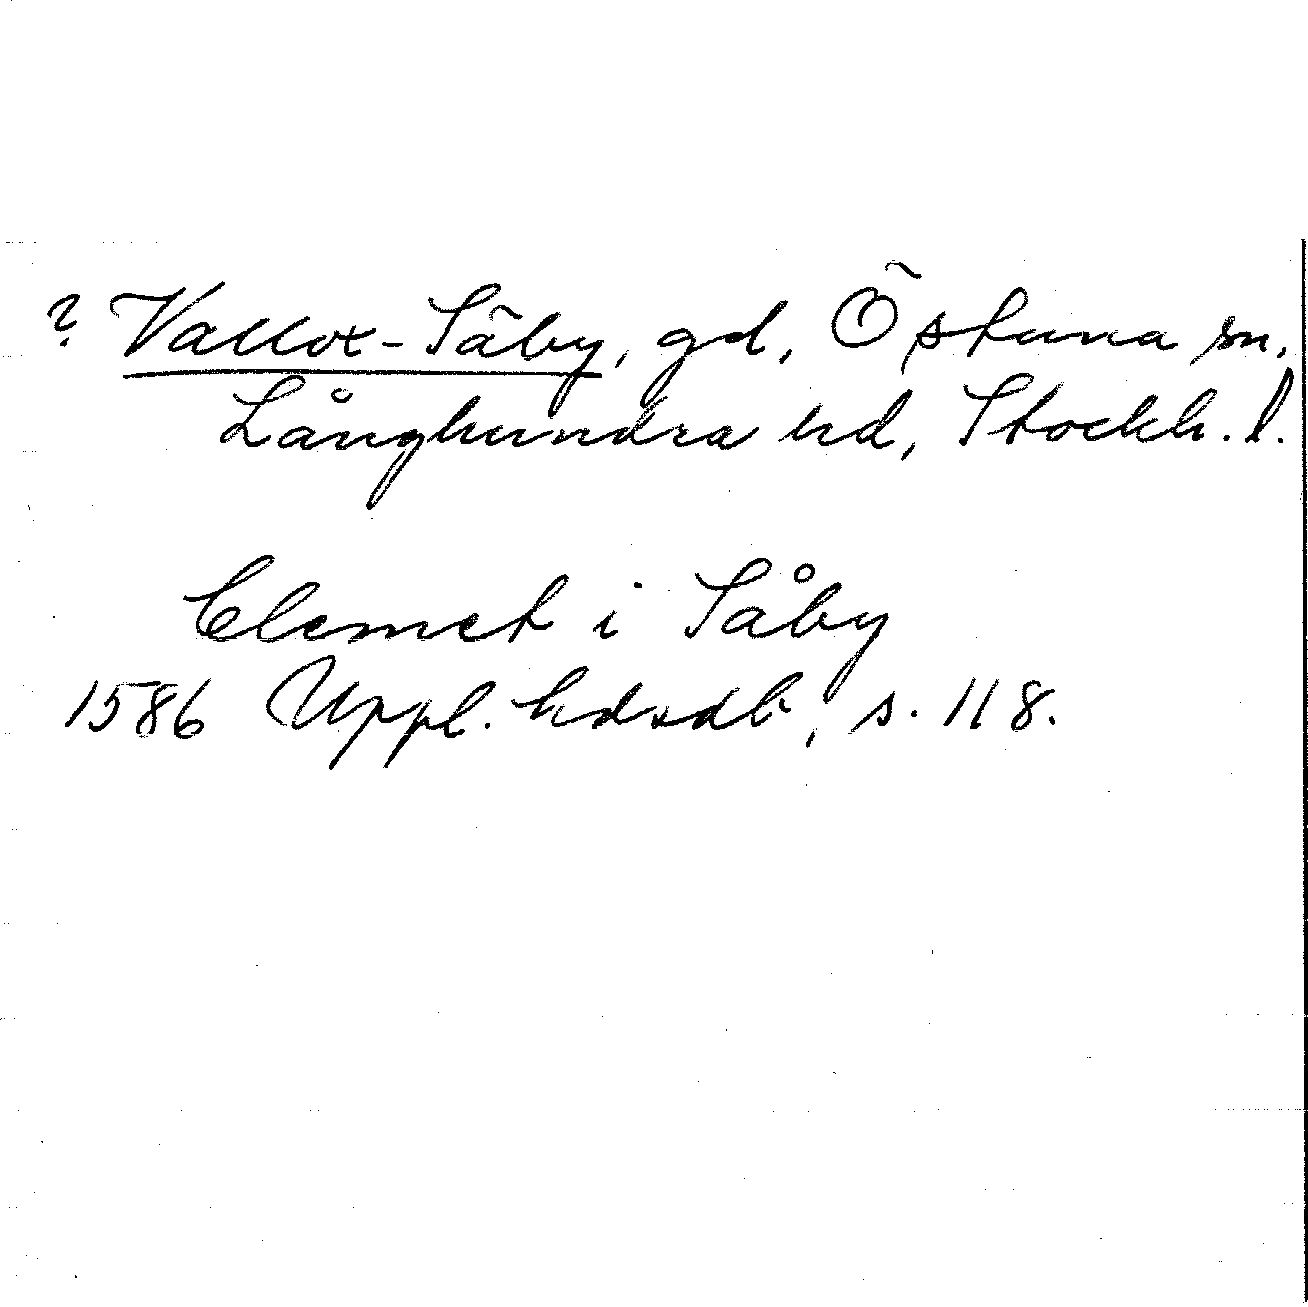 ? Vallox-Säby, gd, Östuna sn,
Långhundra hd, Stockh. l.
Clemet i Såby
1586 Uppl. hdsdb, s. 118.